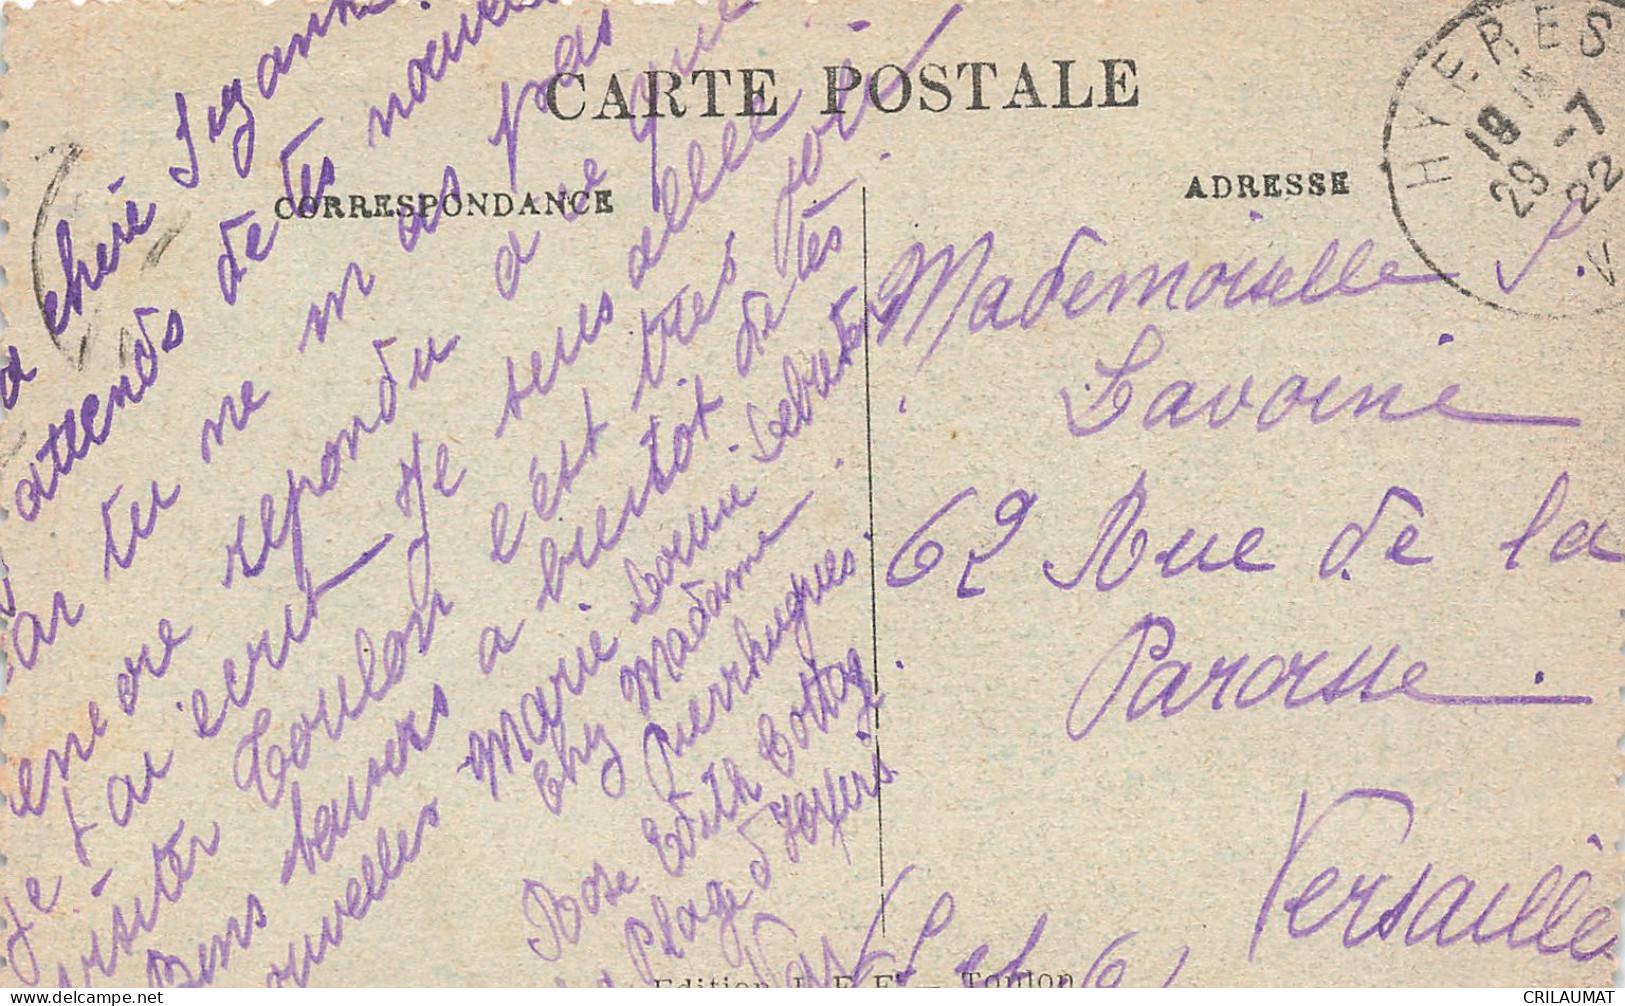 CARTE POSTALE
CORRESPONDANCE
ADRESSE
HYERES
18
29 -7
22
V
a cherie Suzanne
attends de tes nouvelles
car tu ne m as pas
encore repondu a ne que
Je t ai ecrit. Je suis allee
visiter Toulon c est tres joli
Bons baisers a bientot de tes
nouvelles Marie Louise Lebreton
Chez Madame
Pierrhugues.
Rose Edith Cottage
Plage d'Hyères
Var
Mademoiselle S.
Lavoine
62 Rue de la
Paroisse.
Versailles
S et O
Edition L. E. F. — Toulon
CRILAUMAT